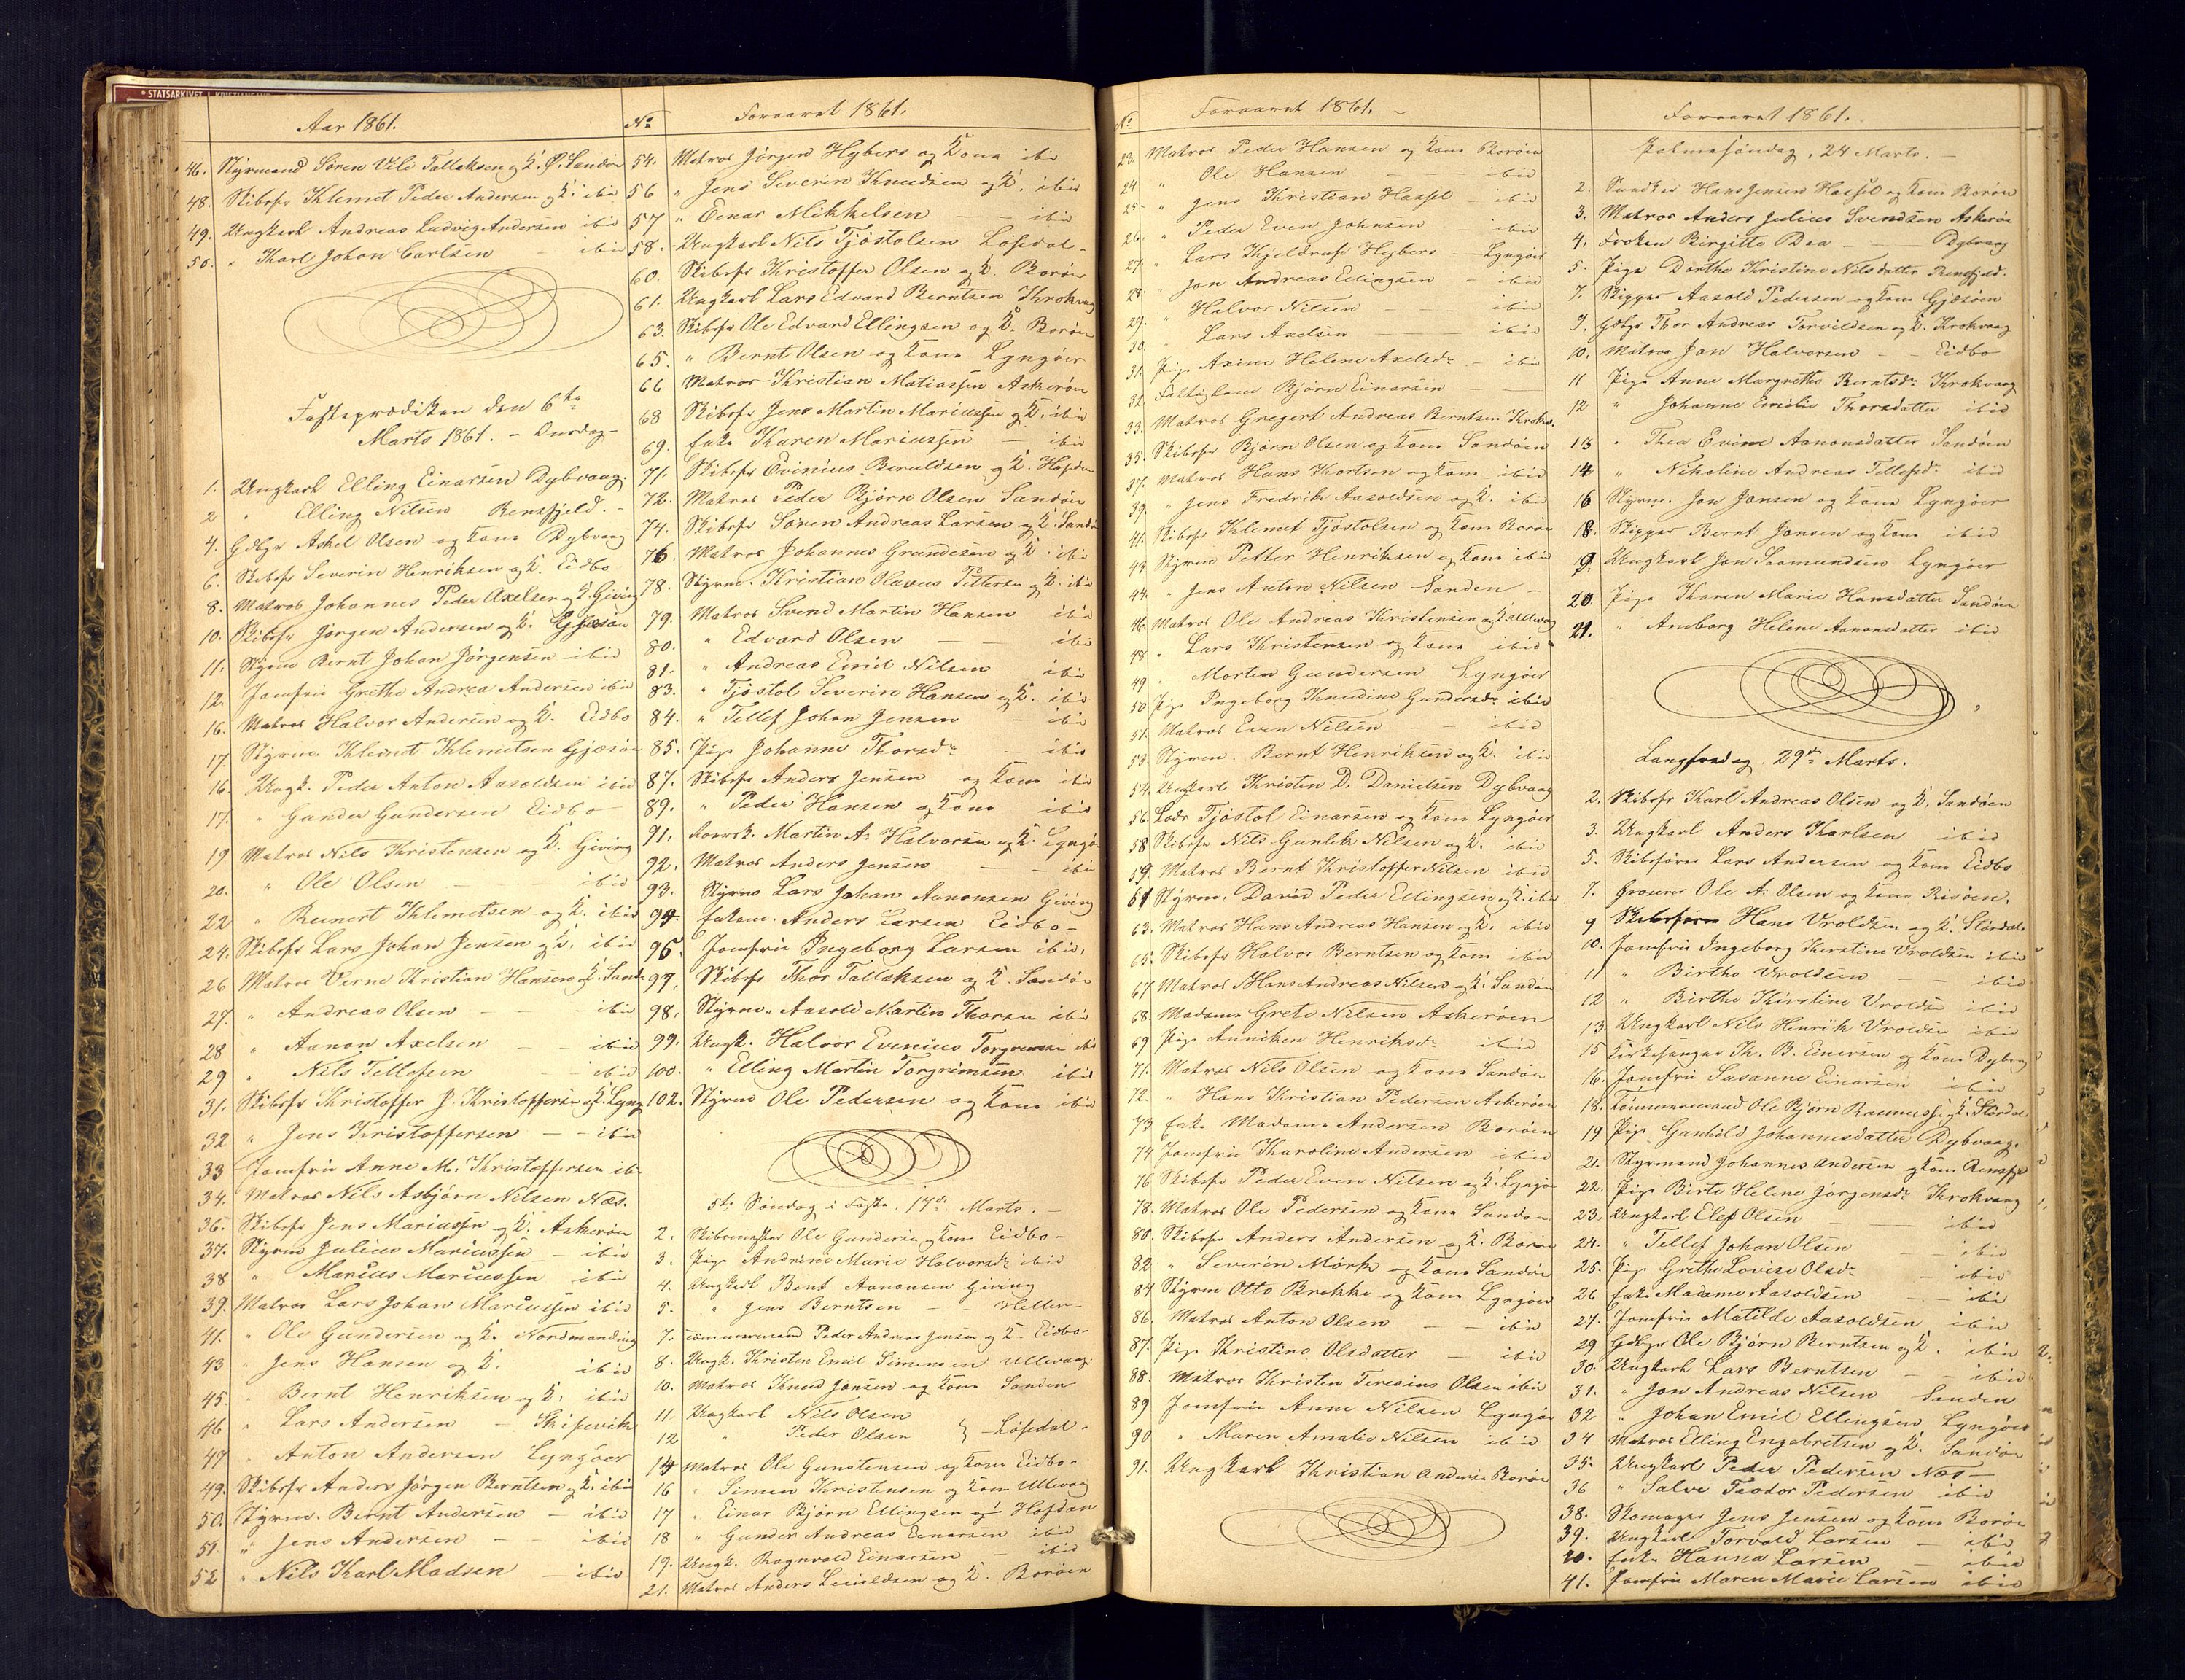 * STATSARKIVET I KRISTIANSAND
Aar 1861.
46. Styrmand Søren Vile Tallaksen og K. Ø. Sandøen
48. Skibsfr Klemet Peder Andersen og K. ibid
49. Ungkarl Andreas Ludvig Andersen ibid
50. " Karl Johan Carlsen ibid
Fasteprædiken den 6te
Marts 1861. – Onsdag –
1. Ungkarl Elling Einarsen Dybvaag.
2 " Elling Nilsen Rensfjeld. –
4. Gdbgr Askel Olsen og Kone Dybvaag
6. Skibsfr Severin Henriksen og K. Eidbo
8. Matros Johannes Peder Axelsen og K. Giving
10. Skibsfr Jørgen Andersen og K. Gjæsøen
11. Styrm Bernt Johan Jørgensen ibid
12. Jomfru Grethe Andrea Andersen ibid
16. Matros Halvor Andersen og K. Eidbo
17. Styrm. Klemet Klemetsen Gjæsøen
16. Ungk. Peder Anton Aasoldsen ibid
17. " Gunder Gundersen Eidbo
19 Matros Nils Kristensen og K. Giving
20. " Ole Olsen – – ibid
22 " Reinert Klemetsen og K. ibid
24. Skibsfr Lars Johan Jensen og K. ibid
26 Matros Verne Kristian Hansen og K. Sandø
27. " Andreas Olsen – – ibid
28 " Aanon Axelsen – ibid
29 " Nils Tellefsen ibid
31. Skibsfr Kristoffer J. Kristoffersen og K. Lyng
32 " Jens Kristoffersen – – ibid
33 Jomfru Anne M. Kristoffersen ib
34. Matros Nils Asbjørn Nilsen Næs.
36. Skibsfr Jens Mariussen og K. Askerøen
37. Styrm Julius Mariussen – ibid
38 " Marius Mariussen ibid
39. Matros Lars Johan Mariussen ibid
41. " Ole Gundersen og K. Nordmandvig
43 " Jens Hansen og K. ibid
45. Bernt Henriksen og K. ibid
46 " Lars Andersen – Skipevik
47 " Anton Andersen Lyngøer
49. Skibsfr Anders Jørgen Berntsen og K. ibid
50. Styrm. Bernt Andersen – ibid
51. " Jens Andersen – – ibid
52 " Nils Karl Madsen – ibid
No Foraaret 1861.
54. Matros Jørgen Hybers og Kone ibid
56 " Jens Severin Knudsen og K. ibid
57 " Einar Mikkelsen – – ibid
58. Ungkarl Nils Tjøstolsen Løfsdal –
60. Skibsfr Kristoffer Olsen og K. Borøen
61. Ungkarl Lars Edvard Berntsen Krokvaag
63. Skibsfr Ole Edvard Ellingsen og K. Borøen
65. " Bernt Olsen og Kone Lyngøer
66 Matros Kristian Matiassen Askerøen
68 Skibsfr Jens Martin Mariussen og K. ibid
69. Enke Karen Mariussen – ibid
71. Skibsfr Evinius Beruldsen og K. Hofdan
72. Matros Peder Bjørn Olsen Sandøen
74. Skibsfr Søren Andreas Larsen og K. Sandø
76. Matros Johannes Grundesen og K. ibid
78. Styrm. Kristian Olaves Pettersen og K. ibid
79. Matros Svend Martin Hansen ibid
80. " Edvard Olsen – – ibid
81. " Andreas Emil Nilsen ibid
83. " Tjøstol Severin Hansen og K. ibid
84. " Tellef Johan Jensen – ibid
85. Pige Johanne Thorsdr – ibid
87. Skibsfr Anders Jensen og Kone ibid
89. " Peder Hansen og Kone ibid
91. Martin A. Halvorsen og K. Lyngø
92. Matros Anders Jensen – – ibid
93. Styrm Lars Johan Aanonsen Giving
94. Enkem. Anders Larsen Eidbo –
96. Jomfru Ingeborg Larsen ibid,
99. Skibsfr Thor Tallaksen og K. Sandøen
98. Styrm. Aasold Martin Thorsen ibid
99. Ungk. Halvor Evenius Torgrimsen ibid
100. " Elling Martin Torgrimsen ibid
102. Styrm Ole Pedersen og Kone ibid
5te Søndag i Faste, 17de Marts. –
2. Skibsmægler Ole Gundersen og Kone Eidbo –
3. Pige Andrine Marie Halvorsdr ibid
4. Ungkarl Bent Aanonsen Giving
5. " Jens Berntsen – – Hetler –
7. Tømmermand Peder Andreas Jensen og K. Eidbo –
8. Ungk. Kristen Emil Simonsen Ullevaag
10. Matros Knud Jansen og Kone Sanden
11. Ungkarl Nils Olsen
12 " Peder Olsen } – Løfsdal –
14 Matros Ole Gunstensen og Kone Eidbo –
16 " Simen Kristensen og Kone Ullevaag
17 " Einar Bjørn Ellingsen og Hofdan
18 " Gunder Andreas Einarsen ibid
19. Ungk. Ragnvald Einarsen – ibid
21. Matros Anders Leruldsen og K. Borøen
No Foraaret 1861. –
23. Matros Peder Hansen og Kone Borøen
24 " Ole Hansen – – ibid
25 " Jens Kristian Hassel – ibid
26. " Peder Even Johnsen – ibid
27. " Lars Kjeldrup Hybers – Lyngøer
28. " Jon Andreas Ellingsen – ibid
29. " Halvor Nilsen – ibid
30. " Lars Axelsen – ibid
31. Pige Axine Helene Axelsdr – ibid
32. Fattiglem Bjørn Einarsen –
33. Matros Gregert Andreas Berntsen Krokv.
35. Skibsfr Bjørn Olsen og Kone Sandøen
37. Matros Hans Kortsen og Kone ibid
39. " Jens Fredrik Aasoldsen og K. ibid
41. Skibsfr Klemet Tjøstolsen og Kone Borøen
43 Styrm Petter Henriksen og Kone ibid
44. " Jens Anton Nilsen Sanden –
46. Matros Ole Andreas Kristensen og K. Ullevaag
48 " Lars Kristensen og Kone ibid
49 " Morten Gundersen Lyngøer
50 Pige Ingeborg Knudine Gundersdr ibid
51. Matros Even Nilsen – – ibid
53. Styrm. Bernt Henriksen og K. ibid
54. Ungkarl Kristen D. Danielsen Dybvaag
56. Lods Tjøstol Einarsen og Kone Lyngøer
58 Skibsfr Nils Gunlek Nilsen og K. ibid
59. Matros Bernt Kristoffer Nilsen ibid
61 Styrm. David Peder Ellingsen og K. ibid
63. Matros Hans Andreas Hansen og K. ibid
65. Skibsfr Halvor Berntsen og Kone ibid
67 Matros Hans Andreas Nilsen og K. Sandøen
68. Madame Grete Nilsen Askerøen
69 Pige Anniken Henriksdr ibid
71. Matros Nils Olsen og Kone Sandøen
72. " Hans Kristian Pedersen Askerøen
73 Enke Madame Andersen Borøen
74 Jomfru Karoline Andersen ibid
76 Skibsfr Peder Even Nilsen og K. Lyngøer
78. Matros Ole Pedersen og Kone Sandøen
80. Skibsfr Anders Andersen og K. Borøen
82 " Severin Mørk og Kone Sandøe
84 Styrm Otto Brekke og Kone Lyngøer
86. Matros Anton Olsen – – ibid
87. Pige Kristine Olsdatter – ibid
88. Matros Kristen Teresius Olsen ibid
89 Jomfru Anne Nilsen Lyngøer
90 " Maren Amalie Nilsen ibid
91. Ungkarl Kristian Anders. Borøen
Foraaret 1861.
Palmesøndag, 24 Marts. –
2. Hans Jensen Hassel og Kone Borøen
3. Matros Anders Julius Svendsen Askerøe
4. Frøken Birgitte Dea – – Dybvaag
5. Pige Dorthe Kristine Nilsdatter Rensfjeld.
7. Skipper Aasold Pedersen og Kone Gjæsøen
9. Gdbgr Thor Andreas Torvildsen og K. Krokvaag
10. Matros Jon Halvorsen – – Eidbo
11 Pige Anne Margrethe Berntsdr Krokvaag
12 " Johanne Emilie Thorsdatter ibid
13 " Thea Evine Aanonsdatter Sandøen
14 " Nikoline Andreas Tellefsdr ibid
16 Styrm. Jon Jansen og Kone Lyngøer
18. Skipper Bernt Jansen og Kone ibid
9. Ungkarl Jon Saamundsen Lyngøer
20. Pige Karen Marie Hansdatter Sandøen
21. " Anborg Helene Aanonsdatter ibid
Langfredag 29de Marts.
2. Skibsfr Karl Andreas Olsen og K. Sandøen
3. Ungkarl Anders Karlsen ibid
5. Skibsfører Lars Andersen og Kone Eidbo
7. Ole A. Olsen og Kone Risøen.
9 Skibsfører Hans Vroldsen og K. Stordal
10. Jomfru Ingeborg Kerstine Vroldsen ibid
11 " Birthe Vroldsen – ibid
12 " Birthe Kirstine Vroldsen ibid
13. Ungkarl Nils Henrik Vroldsen ibid
15 Kirkesanger Th. B. Einersen og Kone Dybvag
16. Jomfru Susanne Einarsen ibid
18. Tømmermand Ole Bjørn Rasmussen og K. Stordal
19 Pige Gunhild Johannesdatter Dybvaag.
21. Styrmand Johannes Andersen og Kone Rensfje
22. Pige Birte Helene Jørgensdr Krokvaag
23. Ungkarl Elef Olsen – – ibid
24. " Tellef Johan Olsen – – ibid
25. Pige Grethe Lovise Olsdr – ibid
26 Enke Madame Aasoldsen – – ibid
27. Jomfru Matilde Aasoldsen ibid
29 Gdbgr Ole Bjørn Berntsen og K. ibid
30. Ungkarl Lars Berntsen – ibid
31. " Jon Andreas Nilsen Sanden
32 " Johan Emil Ellingsen Lyngøer
34 Matros Elling Engebretsen og K. Sandøe
35. Ungkarl Peder Pedersen Næs –
36 " Salve Teodor Pedersen ibid
38. Skomager Jens Jensen og Kone Borøe
39. Ungkarl Torvald Larsen – ibid
40. Enke Hanna Larsen – ibid
41. Jomfru Maren Marie Larsen ibid